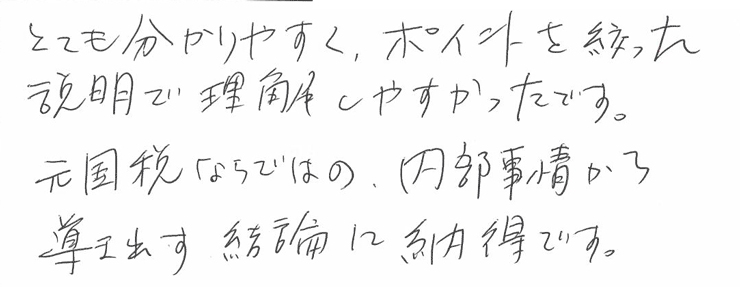 とても分かりやすく、ポイントを絞った
説明で理解しやすかったです。
元国税ならではの、内部事情から
導き出す結論に納得です。